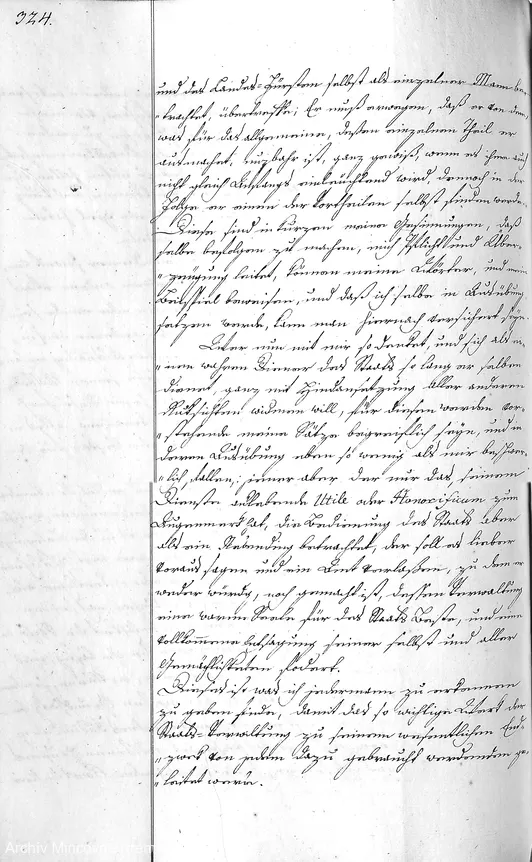 324.
und des Landes-Fürsten selbst als einzelner Mann be-
"trachtet, übertreffe; Er muß erwegen, daß er von dem,
was für das allgemeine, dessen einzelnen Theil er
ausmachet, nuzbahr ist, ganz gewiß, wenn es ihm auch
nicht gleich Anfangs einleuchtend wird, dennoch in der
Folge er einen der Vortheilen selbst finden werde.
Diese sind in kurzen meine Gesinnungen, daß
selbe befolgen zu machen, mich Pflicht und Über-
"zeugung leitet, können meine Wörter, und mein
Beispiel beweisen, und daß ich selbe in Ausübung
setzen werde, kann man hiernach versichert seyn.
Wer nun mit mir so denket, und sich als ei-
"nen wahren Diener des Staats so lang er selben
dienet, ganz mit Hindansetzung aller anderen
Rucksichten widmen will, für diesen werden vor-
"stehende meine Sätze begreiflich seyn, und in
deren Ausübung eben so wenig als mir beschwer-
"lich fallen; jener aber der nur das seinem
Dienste anklebende Utile oder Honorificum zum
Augenmerk hat, die Bedienung des Staats aber
als ein Nebending betrachtet, der soll es lieber
voraus sagen und ein Amt verlassen, zu dem er
weder würdig, noch gemacht ist, dessen Verwaltung
eine warme Seele für des Staats Beste, und eine
vollkommene Entsagung seiner selbst und aller
Gemächlichkeiten fodert.
Dieses ist was ich jedermann zu erkennen
zu geben finde, damit das so wichtige Werk der
Staats-Verwaltung zu seinem wesentlichen End-
"zweck von jedem dazu gebraucht werdenden ge-
"leitet werde.